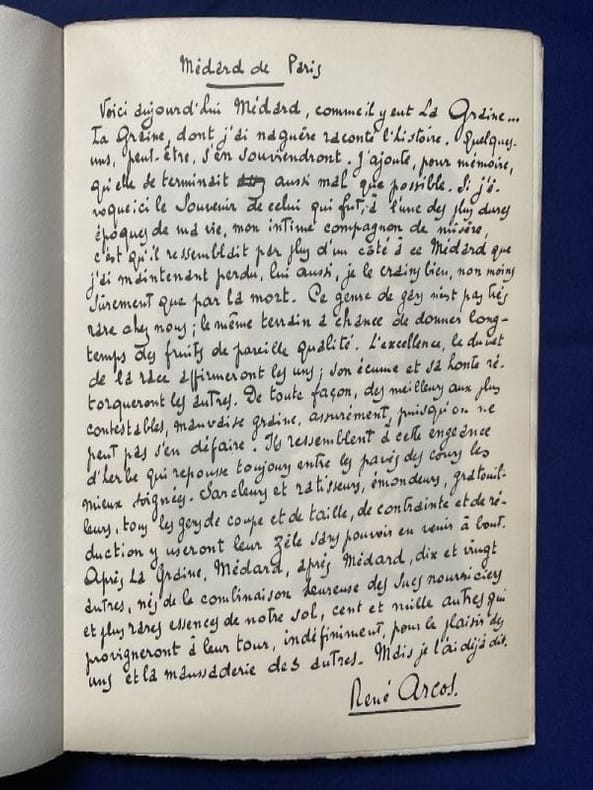 Médard de Paris
Voici aujourd'hui Médard, comme il y eut La Graine...
La Graine, dont j'ai naguère raconté l'histoire. Quelques-
uns, peut-être, s'en souviendront. J'ajoute, pour mémoire,
qu'elle se terminait aussi mal que possible. Si j'é-
voque ici le souvenir de celui qui fut, à l'une des plus dures
époques de ma vie, mon intime compagnon de misère,
c'est qu'il ressemblait par plus d'un côté à ce Médard que
j'ai maintenant perdu, lui aussi, je le crains bien, non moins
sûrement que par la mort. Ce genre de gars n'est pas très
rare chez nous ; le même terrain a chance de donner long-
temps des fruits de pareille qualité. L'excellence, le
de la race affirmeront les uns ; son écume et sa honte ré-
torqueront les autres. De toute façon, des meilleurs aux plus
contestables, mauvaise graine, assurément, puisqu'on ne
peut pas s'en défaire. Ils ressemblent à cette engeance
d'herbe qui repousse toujours entre les pavés des cours les
mieux soignés. Sarcleurs et ratisseurs, émondeurs, gratouil-
leurs, tous les gens de coupe et de taille, de contrainte et de ré-
duction y useront leur zèle sans pouvoir en venir à bout.
Après La Graine, Médard, après Médard, dix et vingt
autres, nés de la combinaison heureuse des sucs nourriciers
et plus rares essences de notre sol, cent et mille autres qui
provigneront à leur tour, indéfiniment, pour le plaisir des
uns et la maussaderie des autres. Mais je l'ai déjà dit.
René Arcos.